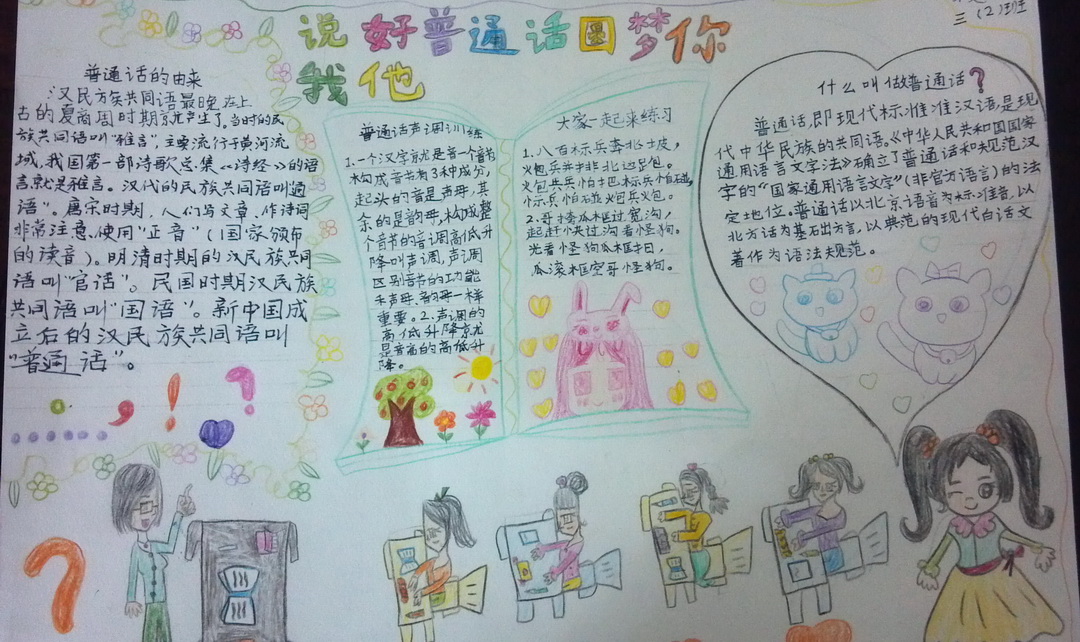 三（2）班
说好普通话圆梦你
我他
普通话的由来
汉民族共同语最晚在上
古的夏商周时期就产生了。当时的民
族共同语叫“雅言”，主要流行于黄河流
域，我国第一部诗歌总集《诗经》的语
言就是雅言。汉代的民族共同语叫通
语”。唐宋时期，人们写文章、作诗词
非常注意使用“正音”（国家颁布
的读音）。明清时期的汉民族共同
语叫“官话”。民国时期汉民族
共同语叫“国语”。新中国成
立后的汉民族共同语叫
“普通话”。
普通话声调训练
1.一个汉字就是音一个音节
构成音节有3种成分，
起头的音是声母，其
余的是韵母，构成整
个音节的音调高低升
降叫声调，声调
区别音节的功能
和声母、韵母一样
重要。2.声调的
高低升降就
是音高的高低升
降。
大家一起来练习
1.八百标兵奔北坡，
炮兵并排北边跑。
炮兵怕把标兵碰，
标兵怕碰炮兵炮。
2.哥挎瓜筐过宽沟，
起赶快过沟看怪狗。
光看怪狗瓜筐扣，
瓜滚筐空哥怪狗。
什么叫做普通话？
普通话，即现代标准准汉语，是现
代中华民族的共同语。《中华人民共和国国家
通用语言文字法》确立了普通话和规范汉
字的“国家通用语言文字”（非官方语言）的法
定地位。普通话以北京语音为标准音，以
北方话为基础方言，以典范的现代白话文
著作为语法规范。